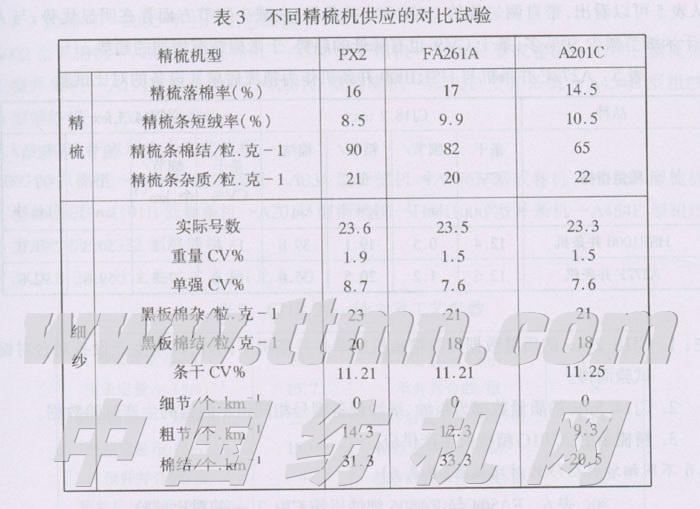 表 3 不同精梳机供应的对比试验
精梳机型 PX2 FA261A A201C
精梳
精梳落棉率(%) 16 17 14.5
精梳条短绒率(%) 8.5 9.9 10.5
精梳条棉结/粒.克-1 90 82 65
精梳条杂质/粒.克-1 21 20 22
细纱
实际号数 23.6 23.5 23.3
重量 CV% 1.9 1.5 1.5
单强 CV% 8.7 7.6 7.6
黑板棉杂/粒.克-1 23 21 21
黑板棉结/粒.克-1 20 18 18
条干 CV% 11.21 11.21 11.25
细节/个.km-1 0 0 0
粗节/个.km-1 14.3 12.3 9.3
棉结/个.km-1 31.3 33.3 20.5
www.ttmn.com
中国纺机网